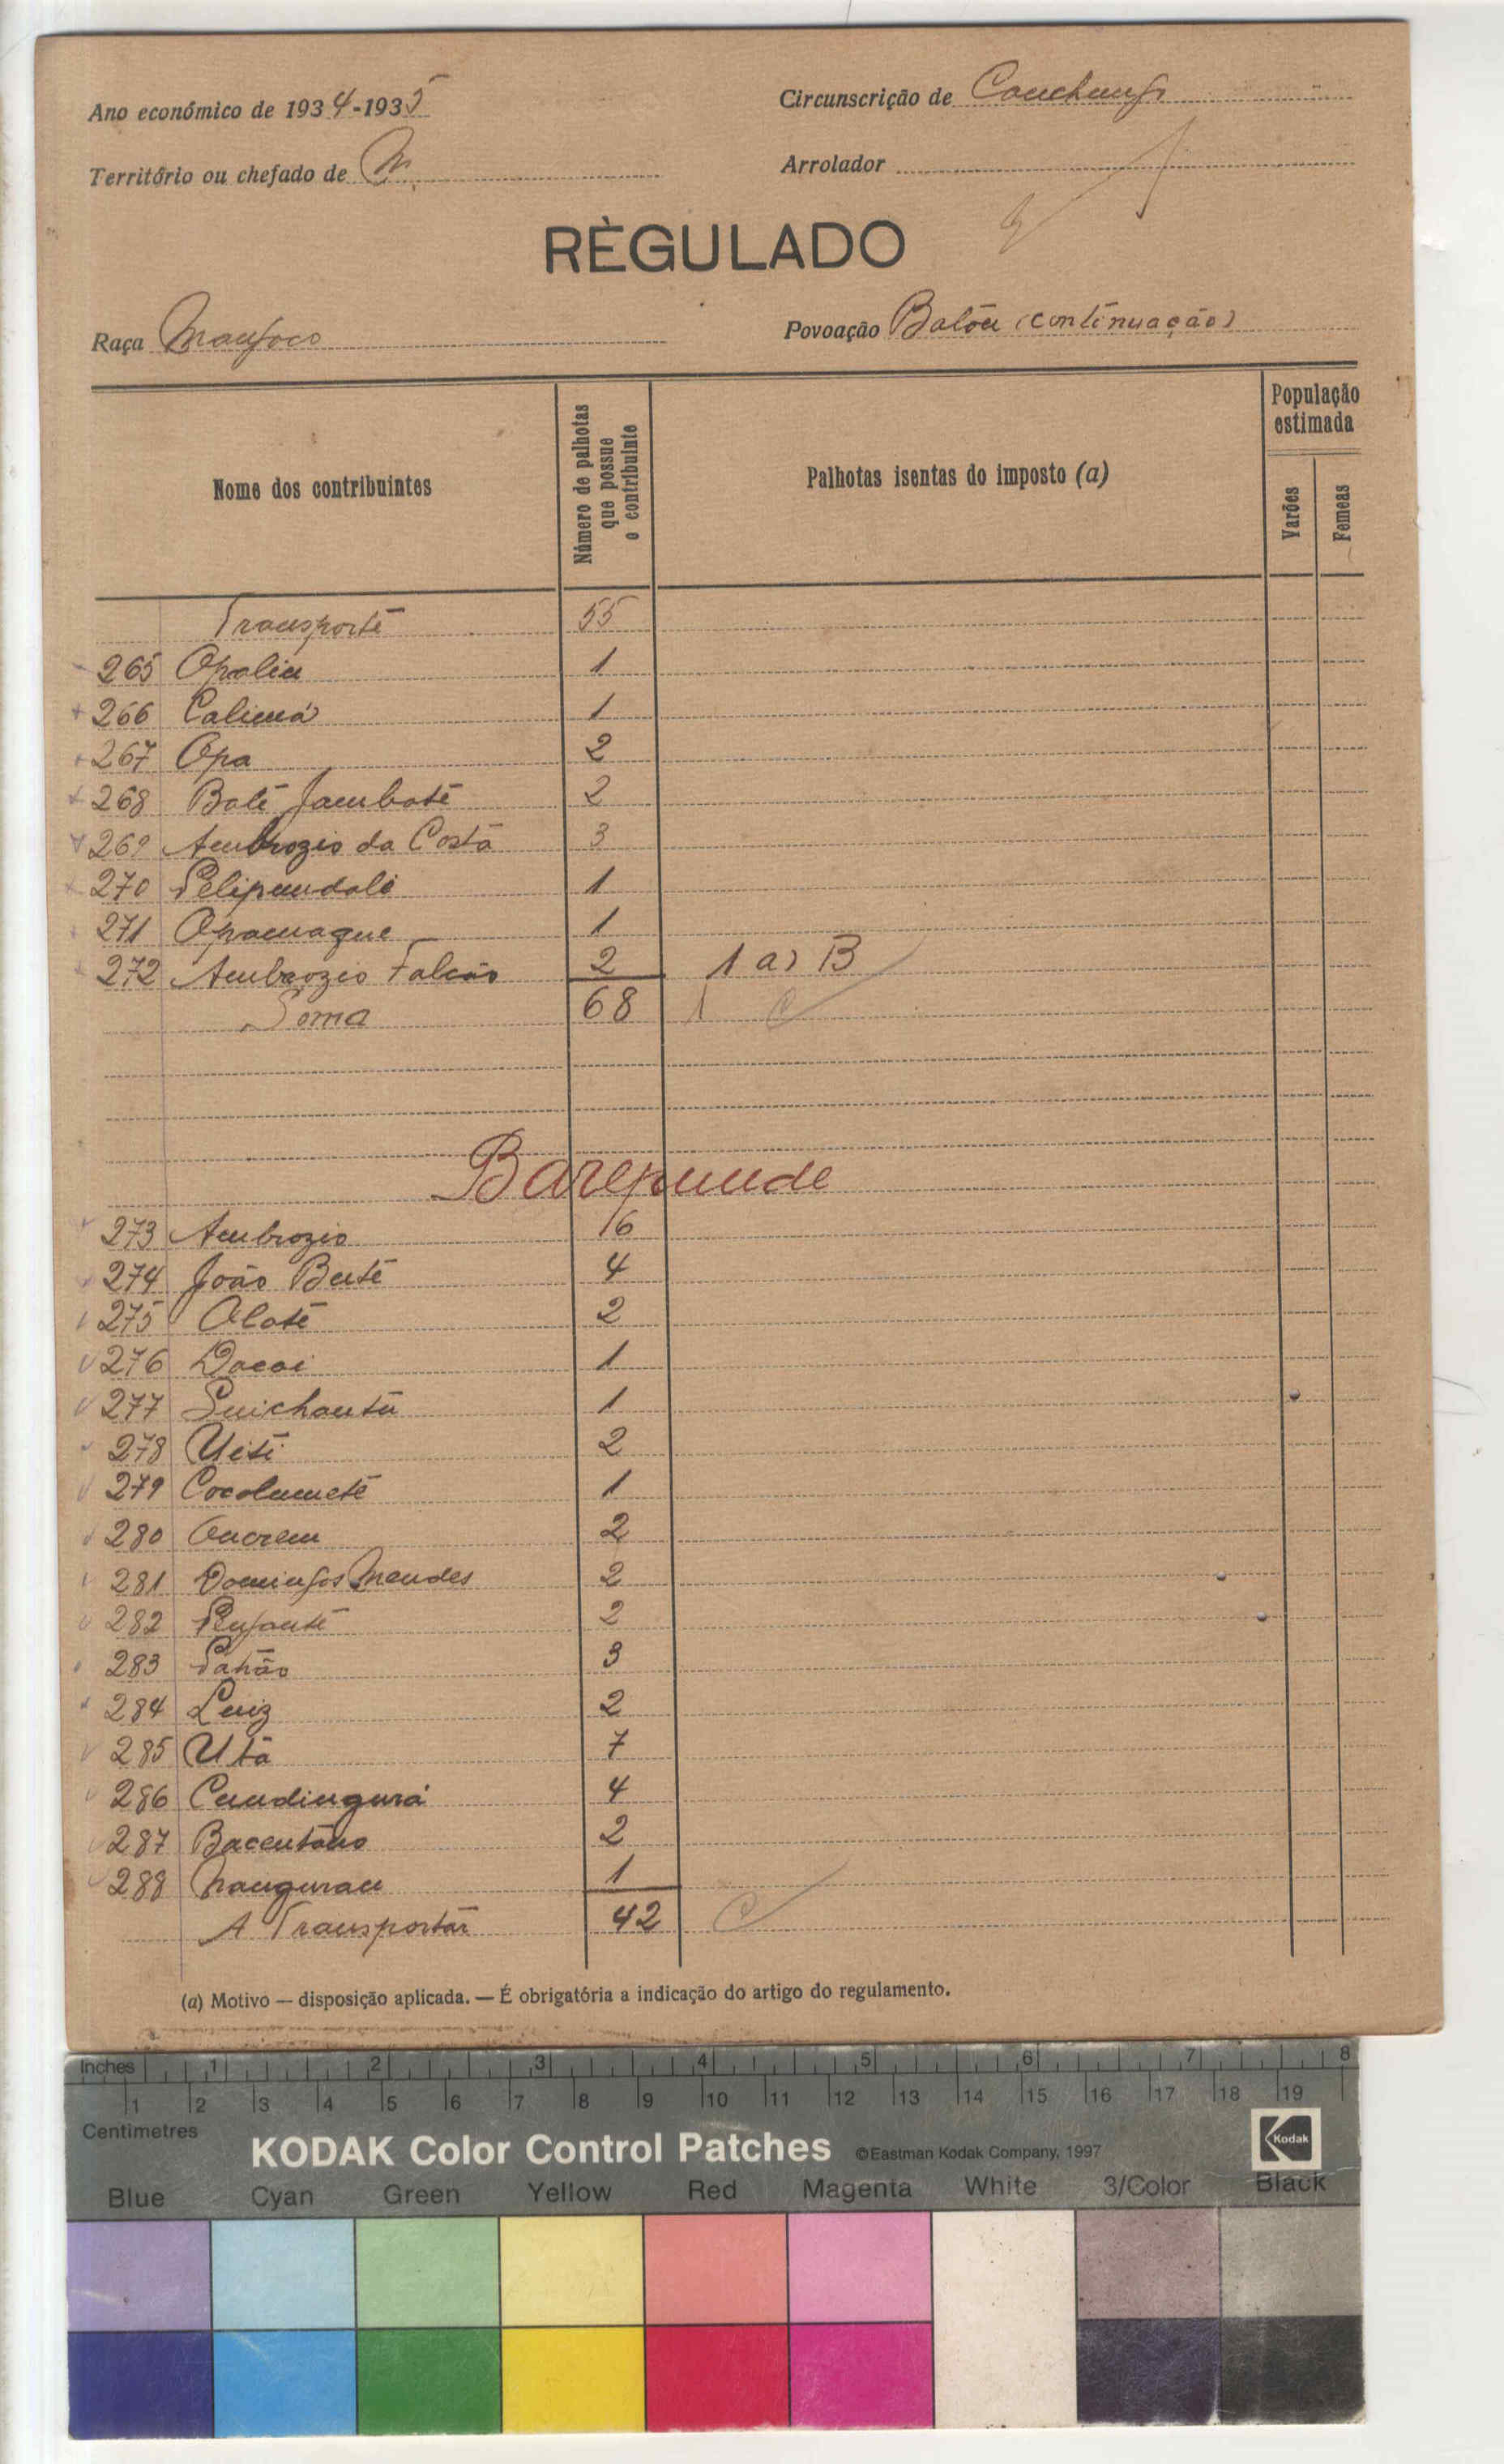 Ano económico de 1934-1935
Circunscrição de Canchungo
Território ou chefado de
Arrolador
RÈGULADO
Raça Manjaco
Povoação Batou (continuação)
Nome dos contribuintes
Número de palhotas que possue o contribuinte
Palhotas isentas do imposto (a)
População estimada
Varões
Femeas
Transporte 55
265 Opaliu 1
266 Calimá 1
267 Opa 2
268 Balé Jambaté 2
269 Ambrozio da Costa 3
270 Pelipundali 1
271 Opamaque 1
272 Ambrozio Falcão 2 1 a) B
Soma 68 1 C
Barepunde
273 Ambrozio 16
274 João Buté 4
275 Olaté 2
276 Dacai 1
277 Quichantu 1
278 Ueti 2
279 Cocolumeté 1
280 Oucrem 2
281 Domingos Mendes 2
282 2
283 3
284 Luiz 2
285 Utã 7
286 Cundingurá 4
287 2
288 Nangurau 1
A Transportar 42 C
(a) Motivo — disposição aplicada. — É obrigatória a indicação do artigo do regulamento.
Inches 1 2 3 4 5 6 7 8
1 2 3 4 5 6 7 8 9 10 11 12 13 14 15 16 17 18 19
Centimetres
KODAK Color Control Patches ©Eastman Kodak Company, 1997 Kodak
Blue Cyan Green Yellow Red Magenta White 3/Color Black